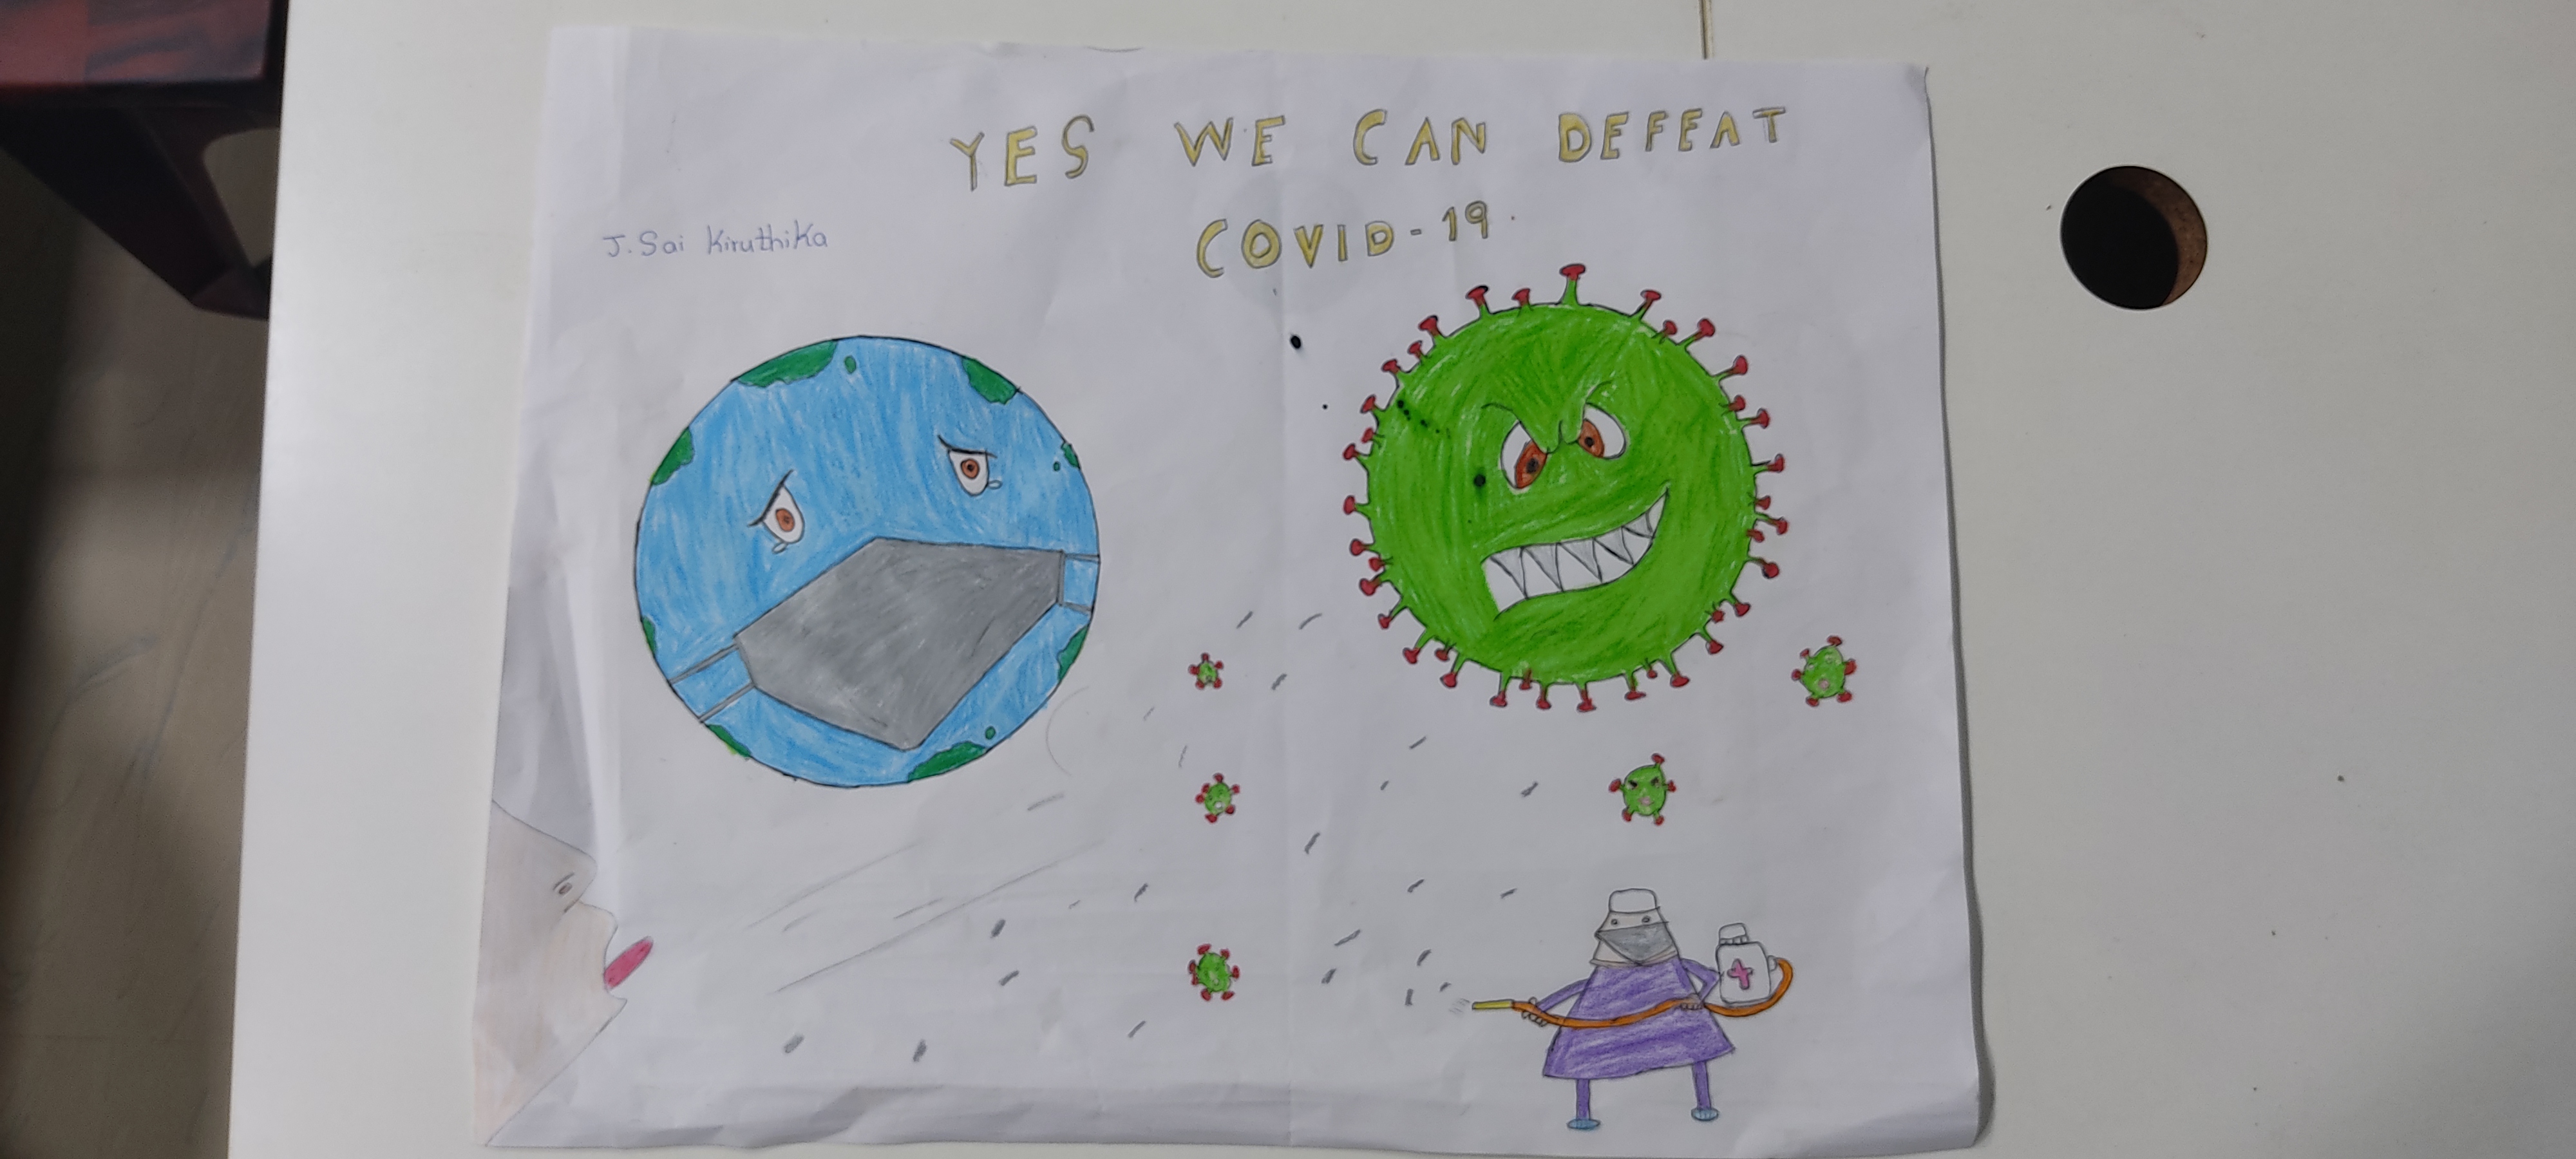 YES WE CAN DEFEAT
COVID-19.
J. Sai Kiruthika